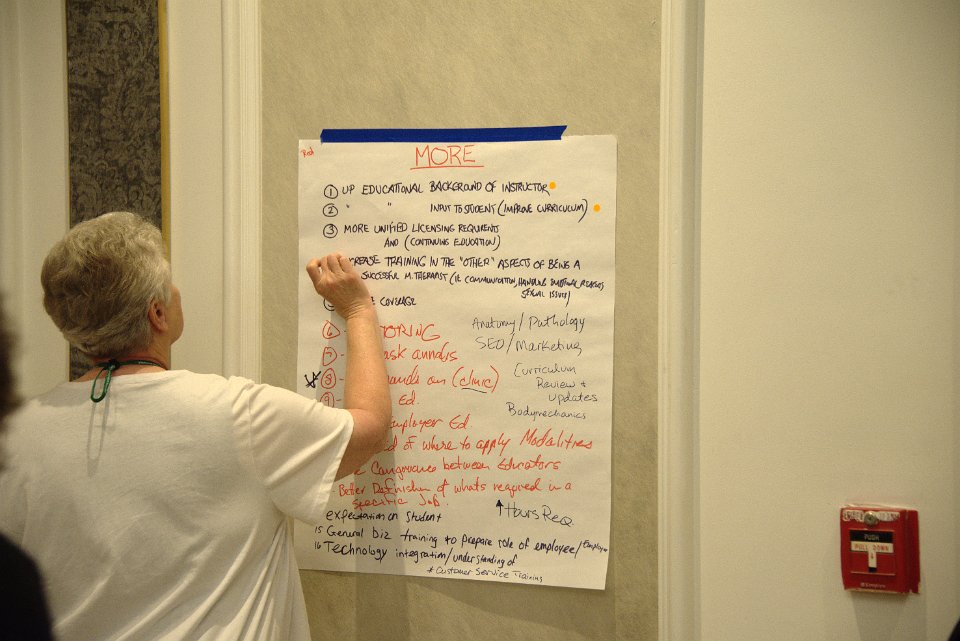 Red
MORE
1 UP EDUCATIONAL BACKGROUND OF INSTRUCTOR
2 " " INPUT TO STUDENT (IMPROVE CURRICULUM)
3 MORE UNIFIED LICENSING REQUIREMENTS
AND (CONTINUING EDUCATION)
CREASE TRAINING IN THE "OTHER" ASPECTS OF BEING A
SUCCESSFUL M. THERAPIST (IE COMMUNICATION, HANDLING EMOTIONAL
SEXUAL ISSUES)
COVERAGE
6 - TORING
7 - ask anndis
8 - hands on (clinic)
9 - Ed.
Employer Ed.
of where to apply Modalities
Congruence between Educators
Better Definition of whats required in a
specific Job.
Anatomy/Pathology
SEO/Marketing
Curriculum
Review +
updates
Bodymechanics
↑ Hours Req
expectation on student
15 General biz training to prepare role of employee/Employer
16 Technology integration/understanding of
* Customer Service Training
PUSH
PULL DOWN